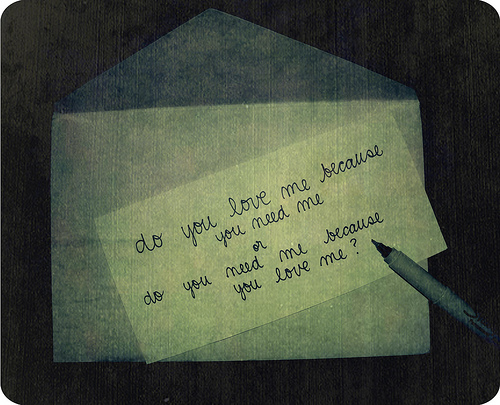 do you love me because
you need me
or
do you need me because
you love me?